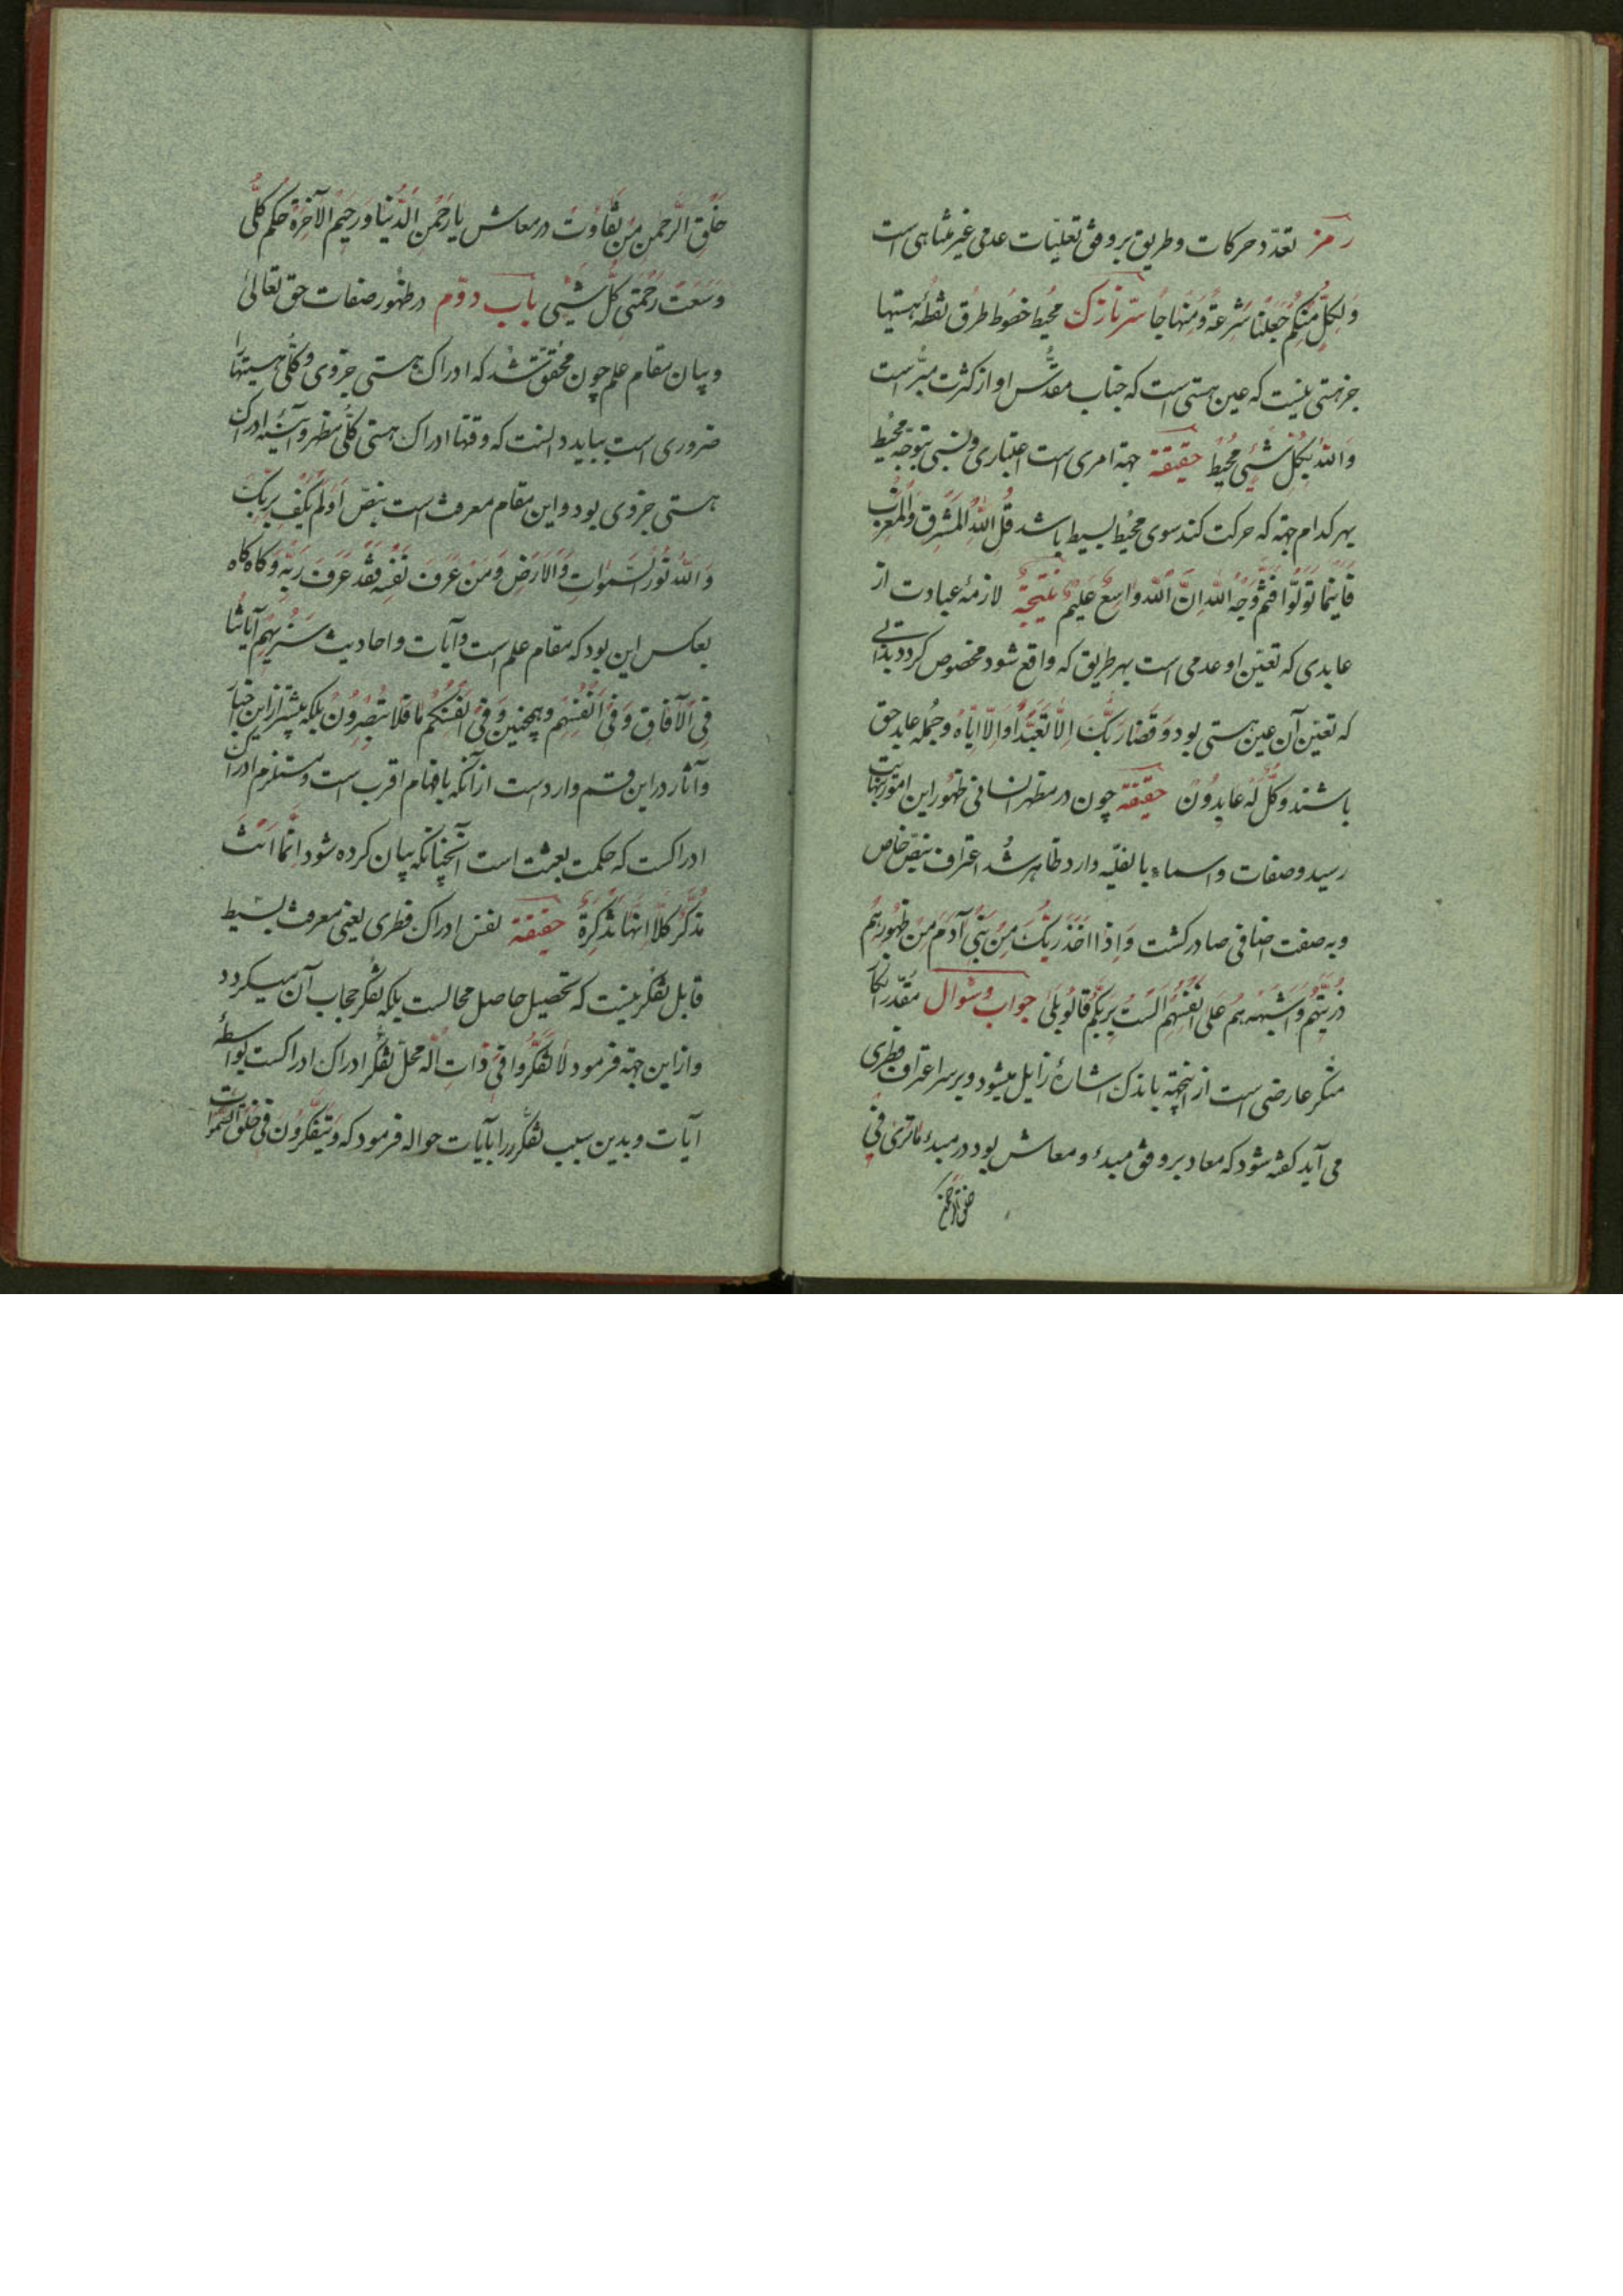 رمز تعدّد حرکات و طریق بر وفق تعیّنات عدمی غیر متناهی است
وَلِکُلٍّ مِنْکُمْ جَعَلْنَا شِرْعَةً وَمِنْهَاجًا سرّ نازک محیط خطوط طرق نقطهٔ هستیها
جز هستی نیست که عین هستی است که جناب مقدّس او از کثرت مبرّاست
وَاللّٰهُ بِکُلِّ شَیْئٍ مُحِیطٌ حقیقة جهة امری است اعتباری و نسبی بتوجّه محیط
بهر کدام جهة که حرکت کند سوی محیُط بسیط باشد قُل لِلّٰهِ الْمَشْرِقُ وَالْمَغْرِبُ
فَاَیْنَمَا تُوَلّوُا فَثَمَّ وَجْهُ اللّٰهِ اِنَّ اللّٰهَ وَاسِعٌ عَلِیمٌ نتیجة لازمهٔ عبادت از
عابدی که تعیّن او عدمی است بهر طریق که واقع شود مخصوص کردد بذاتی
که تعیّن آن عین هستی بود وَ قَضٰا رَبُّکَ اِلَّا تَعْبُدُوا اِلَّا اِیَّاهُ و جمُله عابد حق
باشند وَکُلٌّ لَهُ عَابِدُونَ حقیقة چون در مظهر انسانی ظهُور این امور بنهایت
رسید و صفات و اسماء بالفیّه دارد ظاهر شُد اعتراف بنصّ خاص
و به صفت اضافی صادر کشت وَ اِذْ اَخَذَ رَبُّکَ مِنْ بَنِی آدَمَ مِنْ ظُهُورِهِمْ
ذُرِّیَّتَهُمْ وَاَشْهَدَهُمْ عَلَی اَنْفُسِهِمْ اَلَسْتُ بِرَبِّکُمْ قَالُو بَلَی جواب و سُوال مُقدّر انکار
منکر عارضی است از اینجهة باندک اشارهٔ زایل میشود و بر سر اعتراف فطری
می آید کفته شود که معاد بر وفق مبدء و معاش بود در مبدء مَا تَرَی فِی
خلق الرّحمن
خَلْقِ الرَّحْمٰنِ مِنْ تَفَاوُت در معاش یَا رَحْمٰنَ الدُّنْیَا وَ رَحِیمَ الْآخِرَة حکم کلّی
وَسِعَتْ رَحْمَتِی کُلَّ شَیْئٍ باب دوّم در ظهُور صفات حق تعالیٰ
و بیان مقام علم چون محقّق شُد که ادراک هستی جزوی و کلّی هستیها را
ضروری است بباید دانست که وقتها ادراک هستی کلّی مظهر و آئینهٔ ادراک
هستی جزوی بود و این مقام معرفت است بنصّ اَوَلَمْ یَکْفِ بِرَبِّکَ
وَ اللّٰهُ نُورُ السَّمٰوَاتِ وَالْاَرْضِ وَمَنْ عَرَفَ نَفْسَهُ فَقَدْ عَرَفَ رَبَّهُ وَ کاه کاه
بعکس این بود که مقام علم است و آیات و احادیث سَنُرِیهِمْ آیَاتِنَا
فِی الْآفَاقِ وَ فِی اَنْفُسِهِمْ و همچنین وَ فِی اَنْفُسِکُمْ اَفَلَا تُبْصِرُونَ بلکه بیشتر از این اخبار
و آثار در این قسم وارد است از آنکه بافهام اقرب است و مستلزم ادراک
ادراکست که حکمت بعثت است آنچنانکه بیان کرده شود اِنَّمَا اَنْتَ
مُذَکِّرٌ کَلَّا اِنَّهَا تَذْکِرَةٌ حقیقة نفس ادراک فطری یعنی معرفت بسیط
قابل تفکّر نیست که تحصیل حاصل محالست بلکه تفکّر حجاب آن میکردد
و از این جهة فرمود لَا تَفَکَّرُوا فِی ذَاتِ الله محلّ تفکّر ادراک ادراکست بواسطهٔ
آیات و بدین سبب تفکّر را بآیات حواله فرمود که وَ یَتَفَکَّرُونَ فِی خَلْقِ السَّمٰوَات